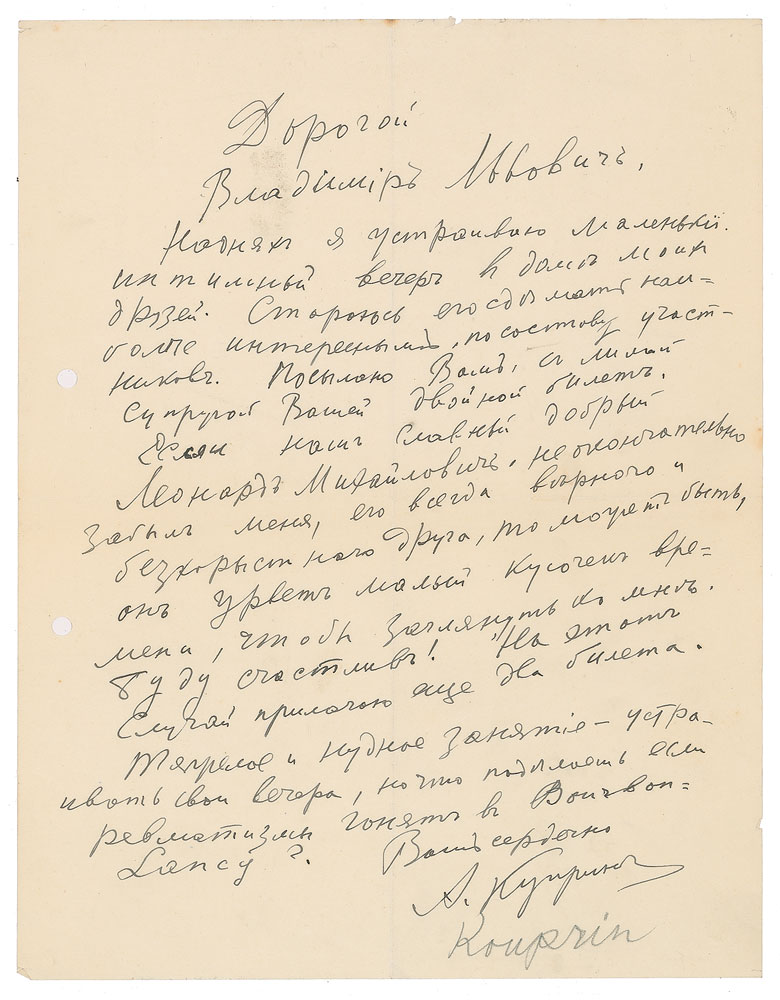 Дорогой
Владиміръ Львовичъ,
Наднях я устраиваю маленькій
интимный вечеръ в домѣ моих
друзей. Стараюсь его сдѣлать наи=
болѣе интереснымъ, по составу участ-
никовъ. Посылаю Вамъ, съ милой
супругой Вашей двойной билетъ.
Если нашъ славный добрый
Леонардъ Михайловичъ, не окончательно
забылъ меня, его всегда вѣрного и
безкорыстнаго друга, то можетъ быть,
онъ урветъ малый кусочекъ вре=
мени, чтобы заглянуть ко мнѣ.
Буду счастливъ! На этотъ
случай прилагаю еще два билета.
Тяжелое и нудное занятіе – устра-
ивать свои вечера, но что подѣлаешь если
ревматизмы гонятъ в
Lancy?. Вашъ сердечно
А. Куприн
Kouprin